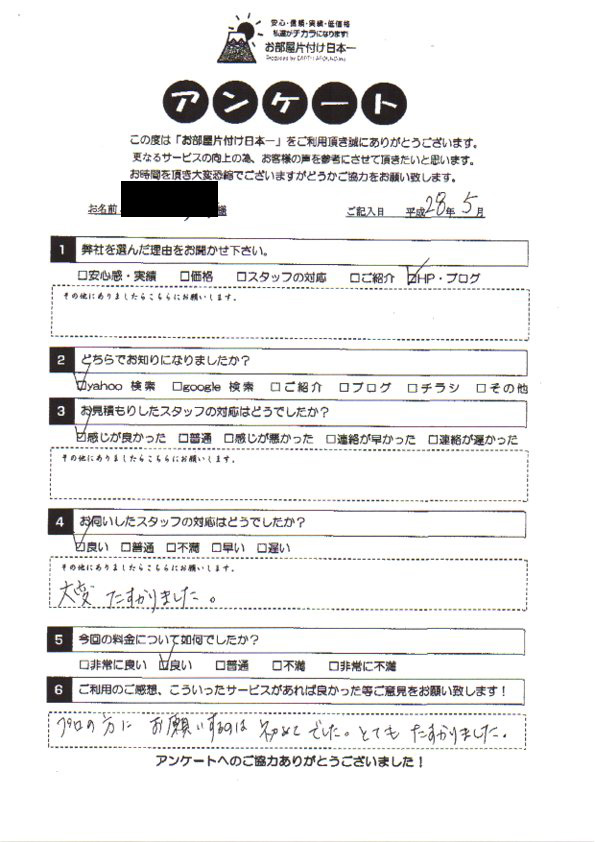 安心・信頼・実績・低価格
私達がチカラになります!
お部屋片付け日本一
Produced by EARTH AROUND inc
アンケート
この度は「お部屋片付け日本一」をご利用頂き誠にありがとうございます。
更なるサービスの向上の為、お客様の声を参考にさせて頂きたいと思います。
お時間を頂き大変恐縮でございますがどうかご協力をお願い致します。
お名前 様 ご記入日 平成28年5月
1 弊社を選んだ理由をお聞かせ下さい。
□安心感・実績 □価格 □スタッフの対応 □ご紹介 ☑HP・ブログ
その他にありましたらこちらにお願いします。
2 どちらでお知りになりましたか?
☑yahoo 検索 □google 検索 □ご紹介 □ブログ □チラシ □その他
3 お見積もりしたスタッフの対応はどうでしたか?
☑感じが良かった □普通 □感じが悪かった □連絡が早かった □連絡が遅かった
その他にありましたらこちらにお願いします。
4 お伺いしたスタッフの対応はどうでしたか?
☑良い □普通 □不満 □早い □遅い
その他にありましたらこちらにお願いします。
大変 たすかりました。
5 今回の料金について如何でしたか?
□非常に良い ☑良い □普通 □不満 □非常に不満
6 ご利用のご感想、こういったサービスがあれば良かった等ご意見をお願い致します!
プロの方に お願いするのは 初めてでした。とても たすかりました。
アンケートへのご協力ありがとうございました!